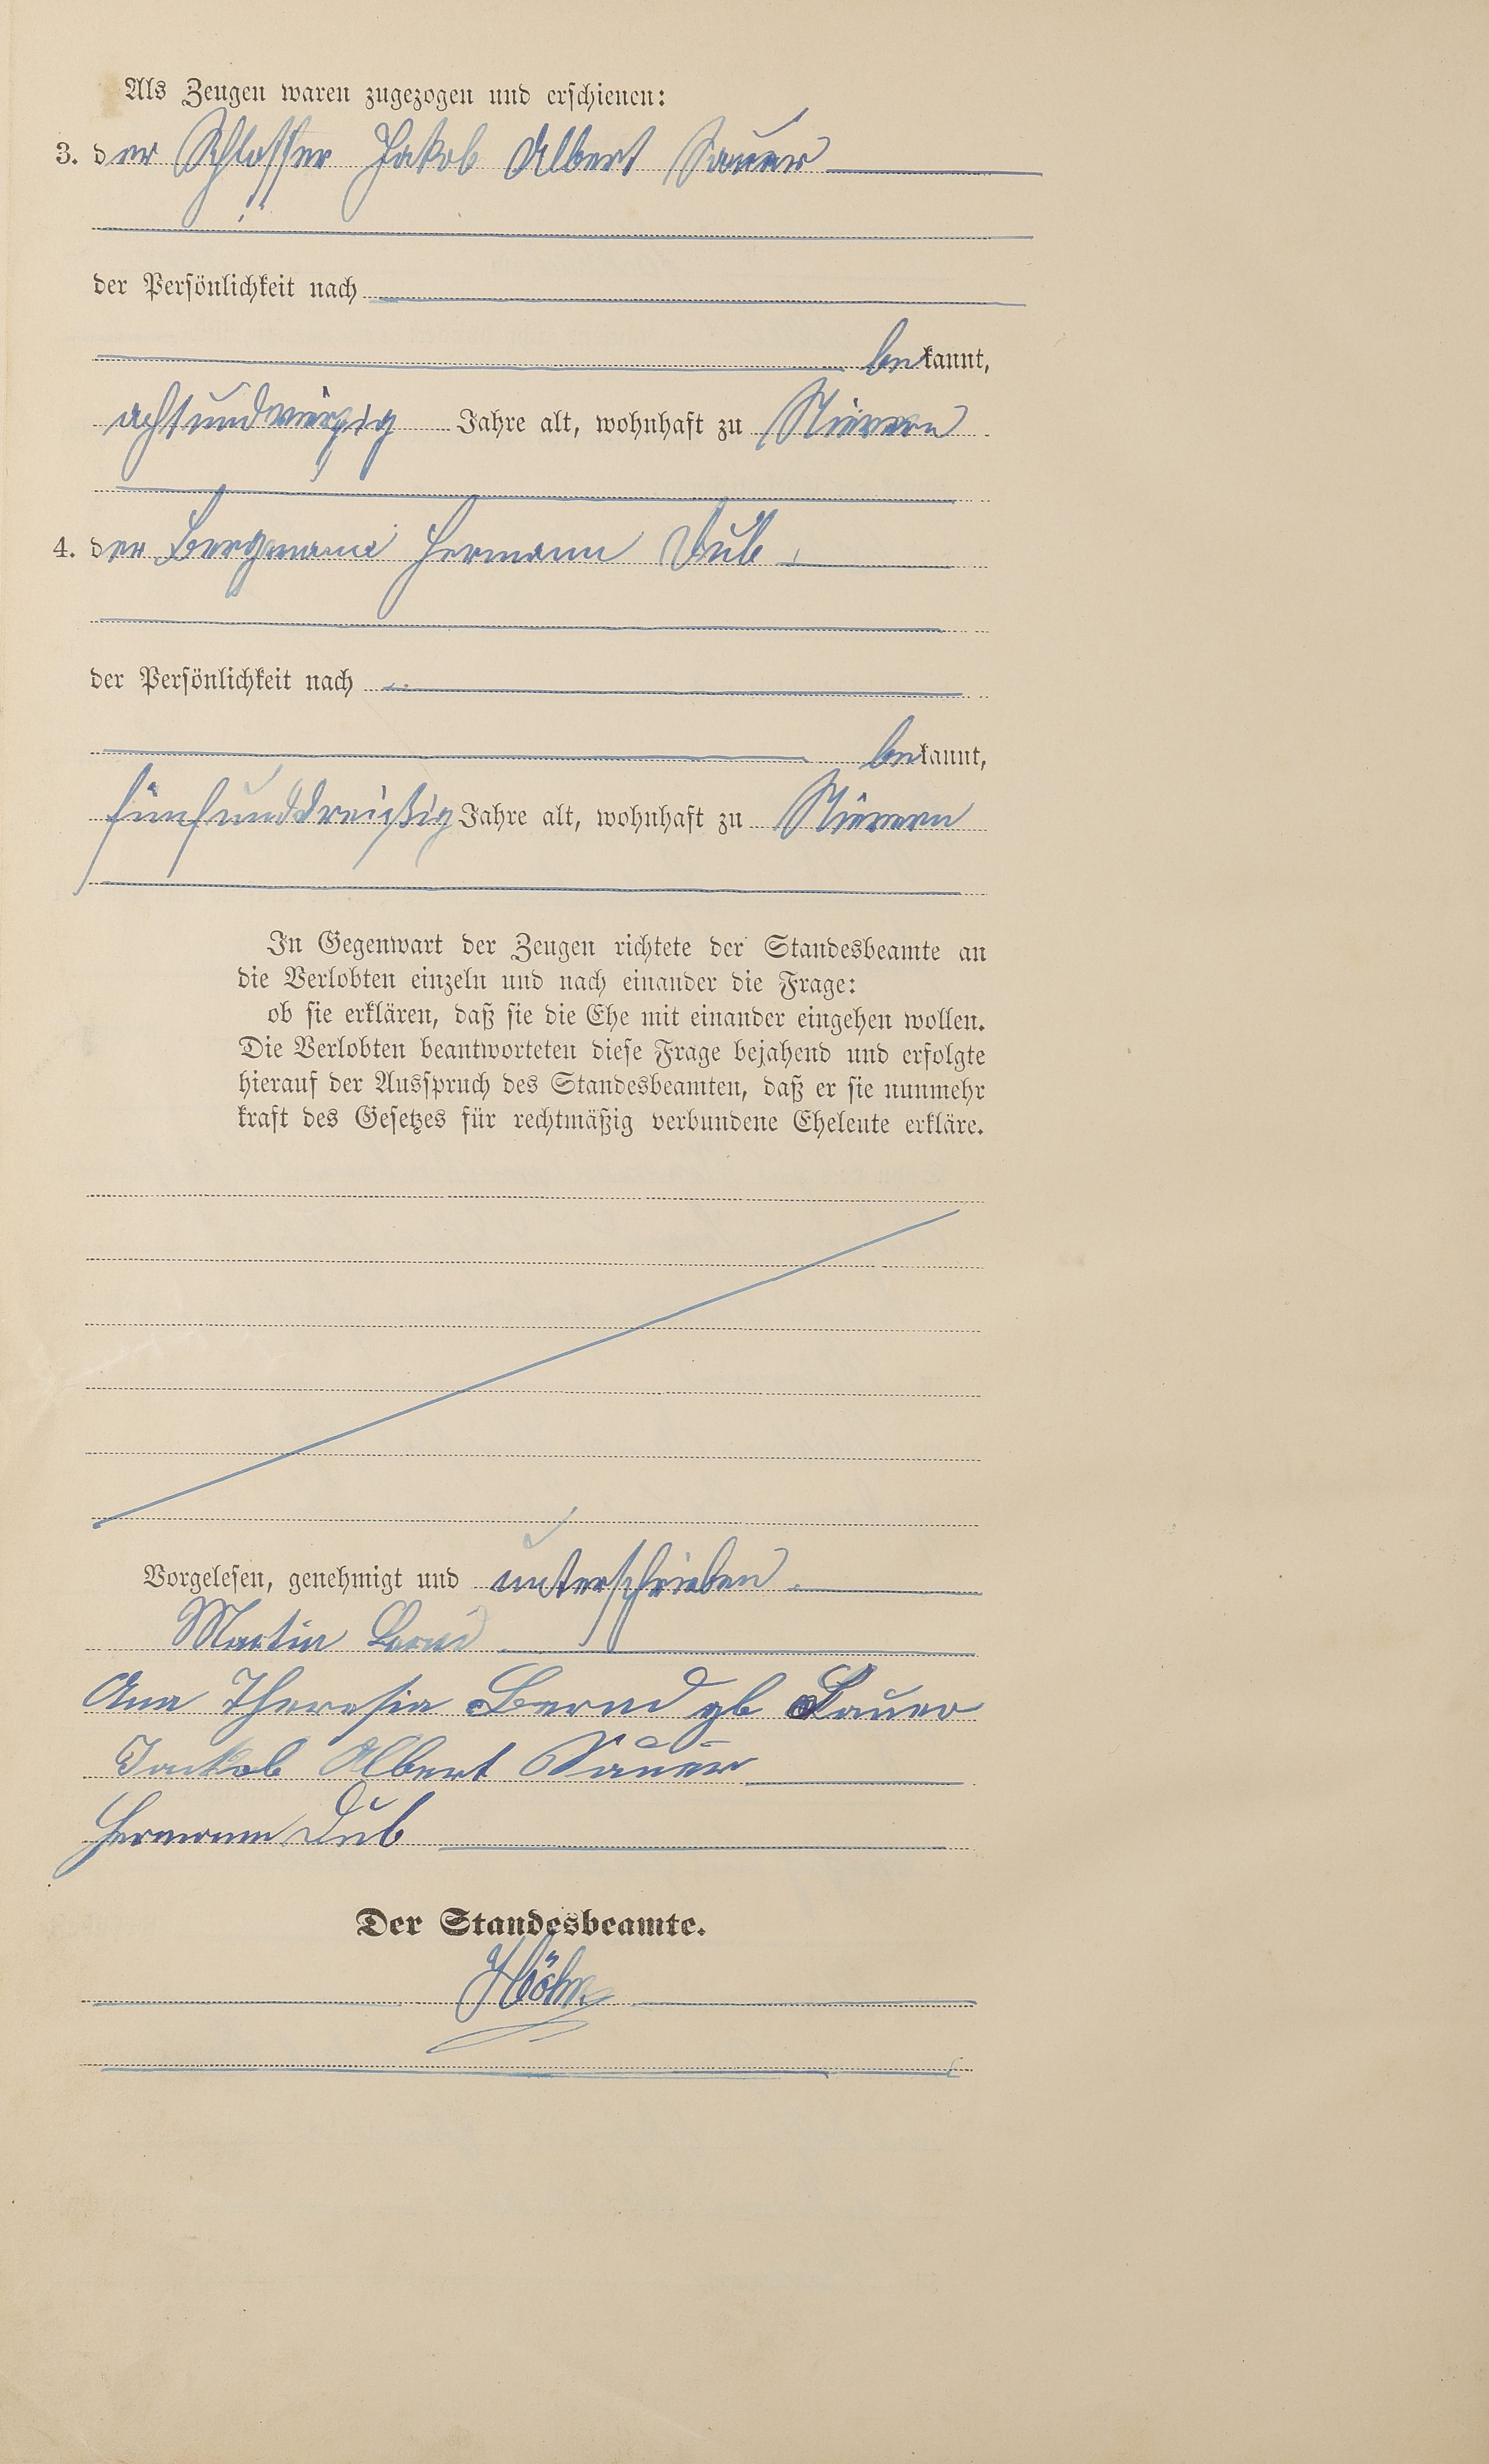 Als Zeugen waren zugezogen und erschienen:
3. der Schlosser Jakob Albert Sauer
der Persönlichkeit nach
bekannt,
achtundvierzig Jahre alt, wohnhaft zu Nievern
4. der Bergmann Hermann Dub
der Persönlichkeit nach
bekannt,
fünfunddreißig Jahre alt, wohnhaft zu Nievern
In Gegenwart der Zeugen richtete der Standesbeamte an
die Verlobten einzeln und nach einander die Frage:
ob sie erklären, daß sie die Ehe mit einander eingehen wollen.
Die Verlobten beantworteten diese Frage bejahend und erfolgte
hierauf der Ausspruch des Standesbeamten, daß er sie nunmehr
kraft des Gesetzes für rechtmäßig verbundene Eheleute erkläre.
Vorgelesen, genehmigt und unterschrieben.
Martin Bernd
Ana Theresia Bernd gb Sauer
Jackob Albert Sauer
Hermann Dub
Der Standesbeamte.